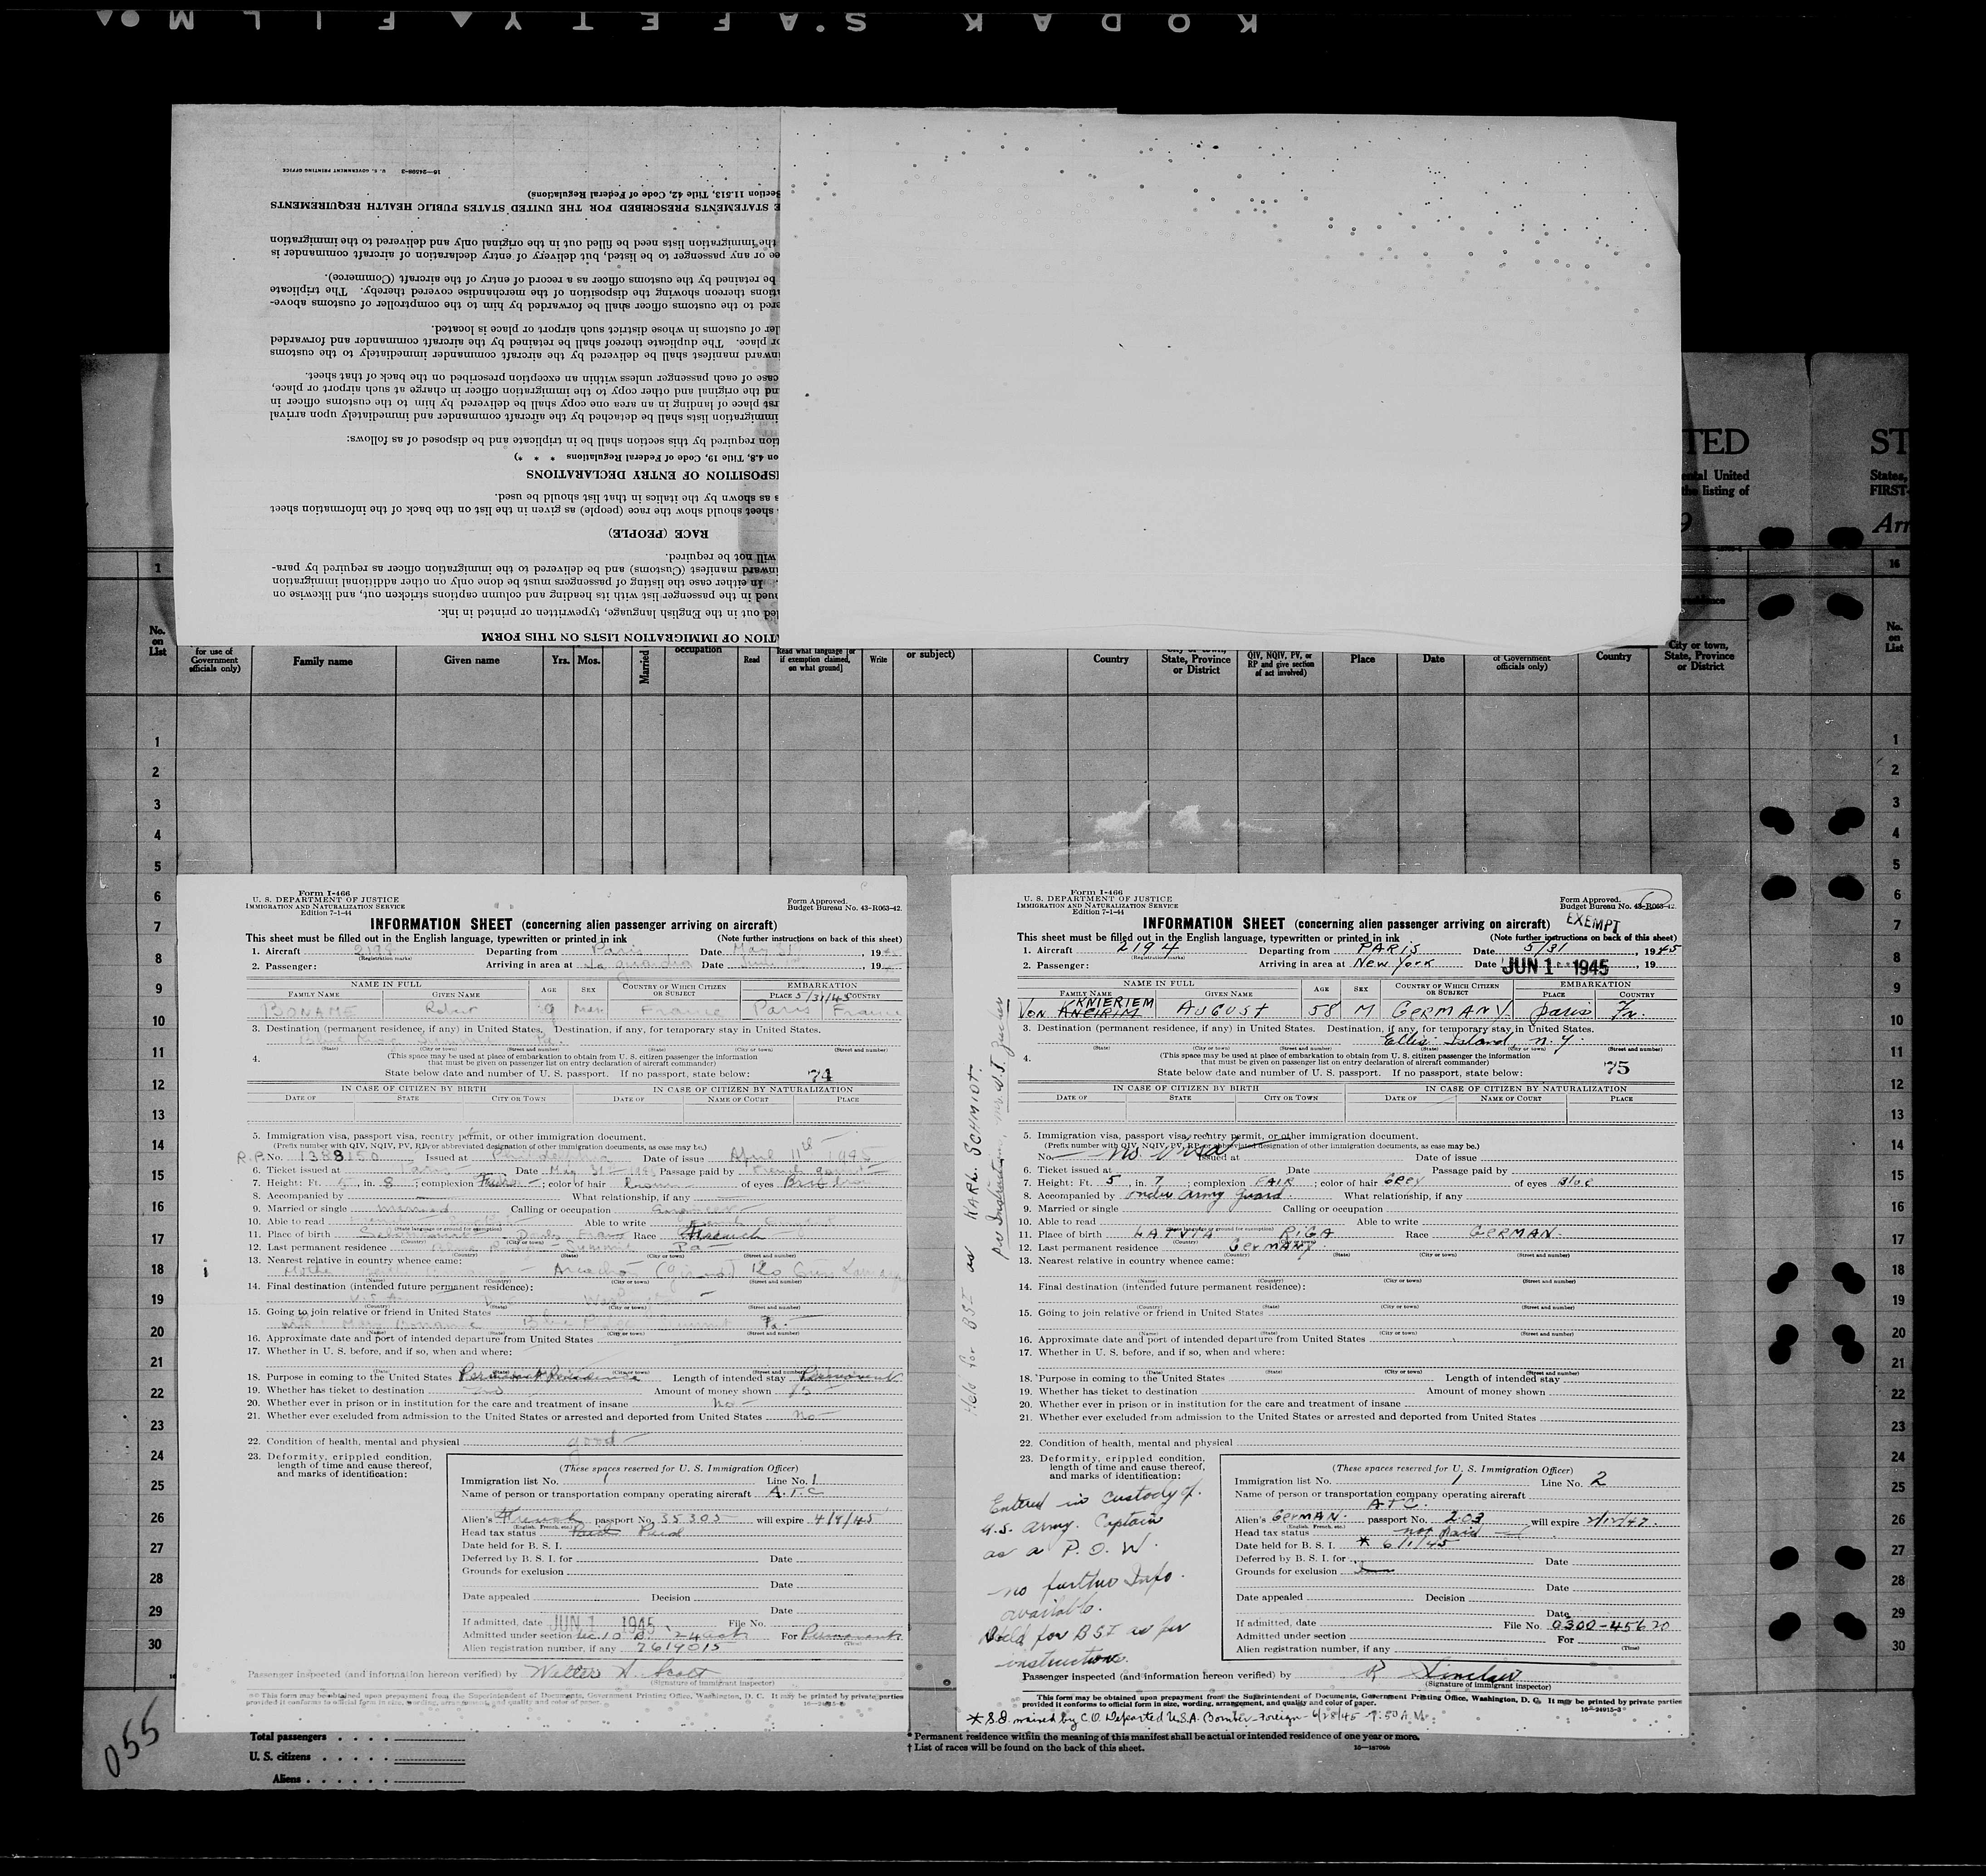 KODAK SAFETY FILM
16—24598-2 U. S. GOVERNMENT PRINTING OFFICE
Section 11.513, Title 42, Code of Federal Regulations)
E STATEMENTS PRESCRIBED FOR THE UNITED STATES PUBLIC HEALTH REQUIREMENTS
the immigration lists need be filled out in the original only and delivered to the immigration
ee or any passenger to be listed, but delivery of entry declaration of aircraft commander is
be retained by the customs officer as a record of entry of the aircraft (Commerce).
ations thereon showing the disposition of the merchandise covered thereby. The triplicate
ered to the customs officer shall be forwarded by him to the comptroller of customs above-
ler of customs in whose district such airport or place is located.
or place. The duplicate thereof shall be retained by the aircraft commander and forwarded
nward manifest shall be delivered by the aircraft commander immediately to the customs
case of each passenger unless within an exception prescribed on the back of that sheet.
nd the original and other copy to the immigration officer in charge at such airport or place,
rst place of landing in an area one copy shall be delivered by him to the customs officer in
immigration lists shall be detached by the aircraft commander and immediately upon arrival
tion required by this section shall be in triplicate and be disposed of as follows:
on 4.8, Title 19, Code of Federal Regulations * * *)
ISPOSITION OF ENTRY DECLARATIONS
s as shown by the italics in that list should be used.
sheet should show the race (people) as given in the list on the back of the information sheet
RACE (PEOPLE)
will not be required.
nward manifest (Customs) and be delivered to the immigration officer as required by para-
In either case the listing of passengers must be done only on other additional immigration
ued in the passenger list with its heading and column captions stricken out, and likewise on
led out in the English language, typewritten or printed in ink.
ATION OF IMMIGRATION LISTS ON THIS FORM
TED ST
ental United States,
the listing of FIRST-
9 Arr
1 16
No. on List
for use of Government officials only) Family name Given name Yrs. Mos. Married occupation Read Read what language [or if exemption claimed, on what ground] Write or subject) Country City or town, State, Province or District QIV, NQIV, PV, or RP and give section of act involved) Place Date of Government officials only) Country City or town, State, Province or District
No. on List
1 1
2 2
3 3
4 4
5 5
6 6
7 7
8 8
9 9
10 10
11 11
12 12
13 13
14 14
15 15
16 16
17 17
18 18
19 19
20 20
21 21
22 22
23 23
24 24
25 25
26 26
27 27
28 28
29 29
30 30
Form I-466
U. S. DEPARTMENT OF JUSTICE
IMMIGRATION AND NATURALIZATION SERVICE
Edition 7-1-44
Form Approved.
Budget Bureau No. 43-R063-42.
INFORMATION SHEET (concerning alien passenger arriving on aircraft)
This sheet must be filled out in the English language, typewritten or printed in ink (Note further instructions on back of this sheet)
1. Aircraft Departing from Paris Date May 31, 19
(Registration marks)
2. Passenger: Arriving in area at La Guardia Date June , 19
NAME IN FULL AGE SEX COUNTRY OF WHICH CITIZEN OR SUBJECT EMBARKATION
FAMILY NAME GIVEN NAME PLACE 5/31/45 COUNTRY
BONAME Robert France Paris France
3. Destination (permanent residence, if any) in United States. Destination, if any, for temporary stay in United States.
Pa.
(State) (City or town) (Street and number) (City or town) (Street and number)
4. (This space may be used at place of embarkation to obtain from U. S. citizen passenger the information
that must be given on passenger list on entry declaration of aircraft commander)
State below date and number of U. S. passport. If no passport, state below: 74
IN CASE OF CITIZEN BY BIRTH IN CASE OF CITIZEN BY NATURALIZATION
DATE OF STATE CITY OR TOWN DATE OF NAME OF COURT PLACE
5. Immigration visa, passport visa, reentry permit, or other immigration document.
(Prefix number with QIV, NQIV, PV, RP, or abbreviated designation of other immigration documents, as case may be.)
R.P. No. 1388150 Issued at Philadelphia Date of issue April 11th 1945
6. Ticket issued at Paris Date May 31 Passage paid by French gov
7. Height: Ft. 5, in. 8; complexion ; color of hair brown of eyes
8. Accompanied by What relationship, if any
9. Married or single married Calling or occupation Engineer
10. Able to read Able to write
(State language or ground for exemption)
11. Place of birth Race French
(Country) (City or town)
12. Last permanent residence Summit Pa
(Country) (State) (City or town) (Street and number)
13. Nearest relative in country whence came:
(Name) (Country) (City or town) (Street and number)
14. Final destination (intended future permanent residence):
(Country) (State) (City or town) (Street and number)
15. Going to join relative or friend in United States
Boname Pa.
(Name) (State) (City or town) (Street and number)
16. Approximate date and port of intended departure from United States
17. Whether in U. S. before, and if so, when and where:
(Date) (State) (City or town) (Street and number)
18. Purpose in coming to the United States Permanent Residence Length of intended stay Permanent
19. Whether has ticket to destination Amount of money shown
20. Whether ever in prison or in institution for the care and treatment of insane No
21. Whether ever excluded from admission to the United States or arrested and deported from United States No
22. Condition of health, mental and physical good
23. Deformity, crippled condition, length of time and cause thereof, and marks of identification:
(These spaces reserved for U. S. Immigration Officer)
Immigration list No. 1 Line No. 1
Name of person or transportation company operating aircraft A.T.C
Alien's French passport No. 35305 will expire 4/9/45
(English, French, etc.)
Head tax status Paid Paid
Date held for B. S. I.
Deferred by B. S. I. for Date
Grounds for exclusion
Date
Date appealed Decision
Date
If admitted, date JUN 1 1945 File No.
Admitted under section Sec. 10 B. '24 act For Permanent
(Time)
Alien registration number, if any 2614015
Passenger inspected (and information hereon verified) by Walter S. Scott
(Signature of immigrant inspector)
This form may be obtained upon prepayment from the Superintendent of Documents, Government Printing Office, Washington, D. C. It may be printed by private parties
provided it conforms to official form in size, wording, arrangement, and quality and color of paper.
Form I-466
U. S. DEPARTMENT OF JUSTICE
IMMIGRATION AND NATURALIZATION SERVICE
Edition 7-1-44
Form Approved.
Budget Bureau No. 43-R063-42.
EXEMPT
INFORMATION SHEET (concerning alien passenger arriving on aircraft)
This sheet must be filled out in the English language, typewritten or printed in ink (Note further instructions on back of this sheet)
1. Aircraft 2194 Departing from PARIS Date 5/31, 1945
(Registration marks)
2. Passenger: Arriving in area at New York Date JUN 1 1945, 19
NAME IN FULL AGE SEX COUNTRY OF WHICH CITIZEN OR SUBJECT EMBARKATION
FAMILY NAME GIVEN NAME PLACE COUNTRY
KNIERIEM
VON KNEIRIM AUGUST 58 M GERMANY Paris Fr.
3. Destination (permanent residence, if any) in United States. Destination, if any, for temporary stay in United States.
Ellis Island, n.y.
(State) (City or town) (Street and number) (City or town) (Street and number)
4. (This space may be used at place of embarkation to obtain from U. S. citizen passenger the information
that must be given on passenger list on entry declaration of aircraft commander)
State below date and number of U. S. passport. If no passport, state below: 75
IN CASE OF CITIZEN BY BIRTH IN CASE OF CITIZEN BY NATURALIZATION
DATE OF STATE CITY OR TOWN DATE OF NAME OF COURT PLACE
5. Immigration visa, passport visa, reentry permit, or other immigration document.
(Prefix number with QIV, NQIV, PV, RP or abbreviated designation of other immigration documents, as case may be.)
No. No Visa Issued at Date of issue
6. Ticket issued at Date Passage paid by
7. Height: Ft. 5, in. 7; complexion FAIR; color of hair GREY of eyes Blue
8. Accompanied by under army guard. What relationship, if any
9. Married or single Calling or occupation
10. Able to read Able to write
(State language or ground for exemption)
11. Place of birth LATVIA RIGA Race GERMAN.
(Country) (City or town)
12. Last permanent residence GERMANY.
(Country) (State) (City or town) (Street and number)
13. Nearest relative in country whence came:
(Name) (Country) (City or town) (Street and number)
14. Final destination (intended future permanent residence):
(Country) (State) (City or town) (Street and number)
15. Going to join relative or friend in United States
(Name) (State) (City or town) (Street and number)
16. Approximate date and port of intended departure from United States
17. Whether in U. S. before, and if so, when and where:
(Date) (State) (City or town) (Street and number)
18. Purpose in coming to the United States Length of intended stay
19. Whether has ticket to destination Amount of money shown
20. Whether ever in prison or in institution for the care and treatment of insane
21. Whether ever excluded from admission to the United States or arrested and deported from United States
22. Condition of health, mental and physical
23. Deformity, crippled condition, length of time and cause thereof, and marks of identification:
Entered in custody of
U.S. Army. Captain
as a P.O.W.
no further Info.
available.
Held for BSI as per
instructions.
Held for BSI as KARL SCHMIDT.
per Instruction, Mr. W.F. Zucker
(These spaces reserved for U. S. Immigration Officer)
Immigration list No. 1 Line No. 2
Name of person or transportation company operating aircraft
ATC.
Alien's GERMAN. passport No. 203 will expire 2/12/47.
(English, French, etc.)
Head tax status not paid
Date held for B. S. I. * 6/1/45
Deferred by B. S. I. for Date
Grounds for exclusion
Date
Date appealed Decision
Date
If admitted, date File No. 0300-45620
Admitted under section For
(Time)
Alien registration number, if any
Passenger inspected (and information hereon verified) by R Sinclair
(Signature of immigrant inspector)
This form may be obtained upon prepayment from the Superintendent of Documents, Government Printing Office, Washington, D. C. It may be printed by private parties
provided it conforms to official form in size, wording, arrangement, and quality and color of paper.
16—24915-2
* S.I. waived by C.O. Departed U.S.A. Bomber-Foreign-6/28/45-9:50 A.M.
055
Total passengers
U. S. citizens
Aliens
* Permanent residence within the meaning of this manifest shall be actual or intended residence of one year or more.
† List of races will be found on the back of this sheet.